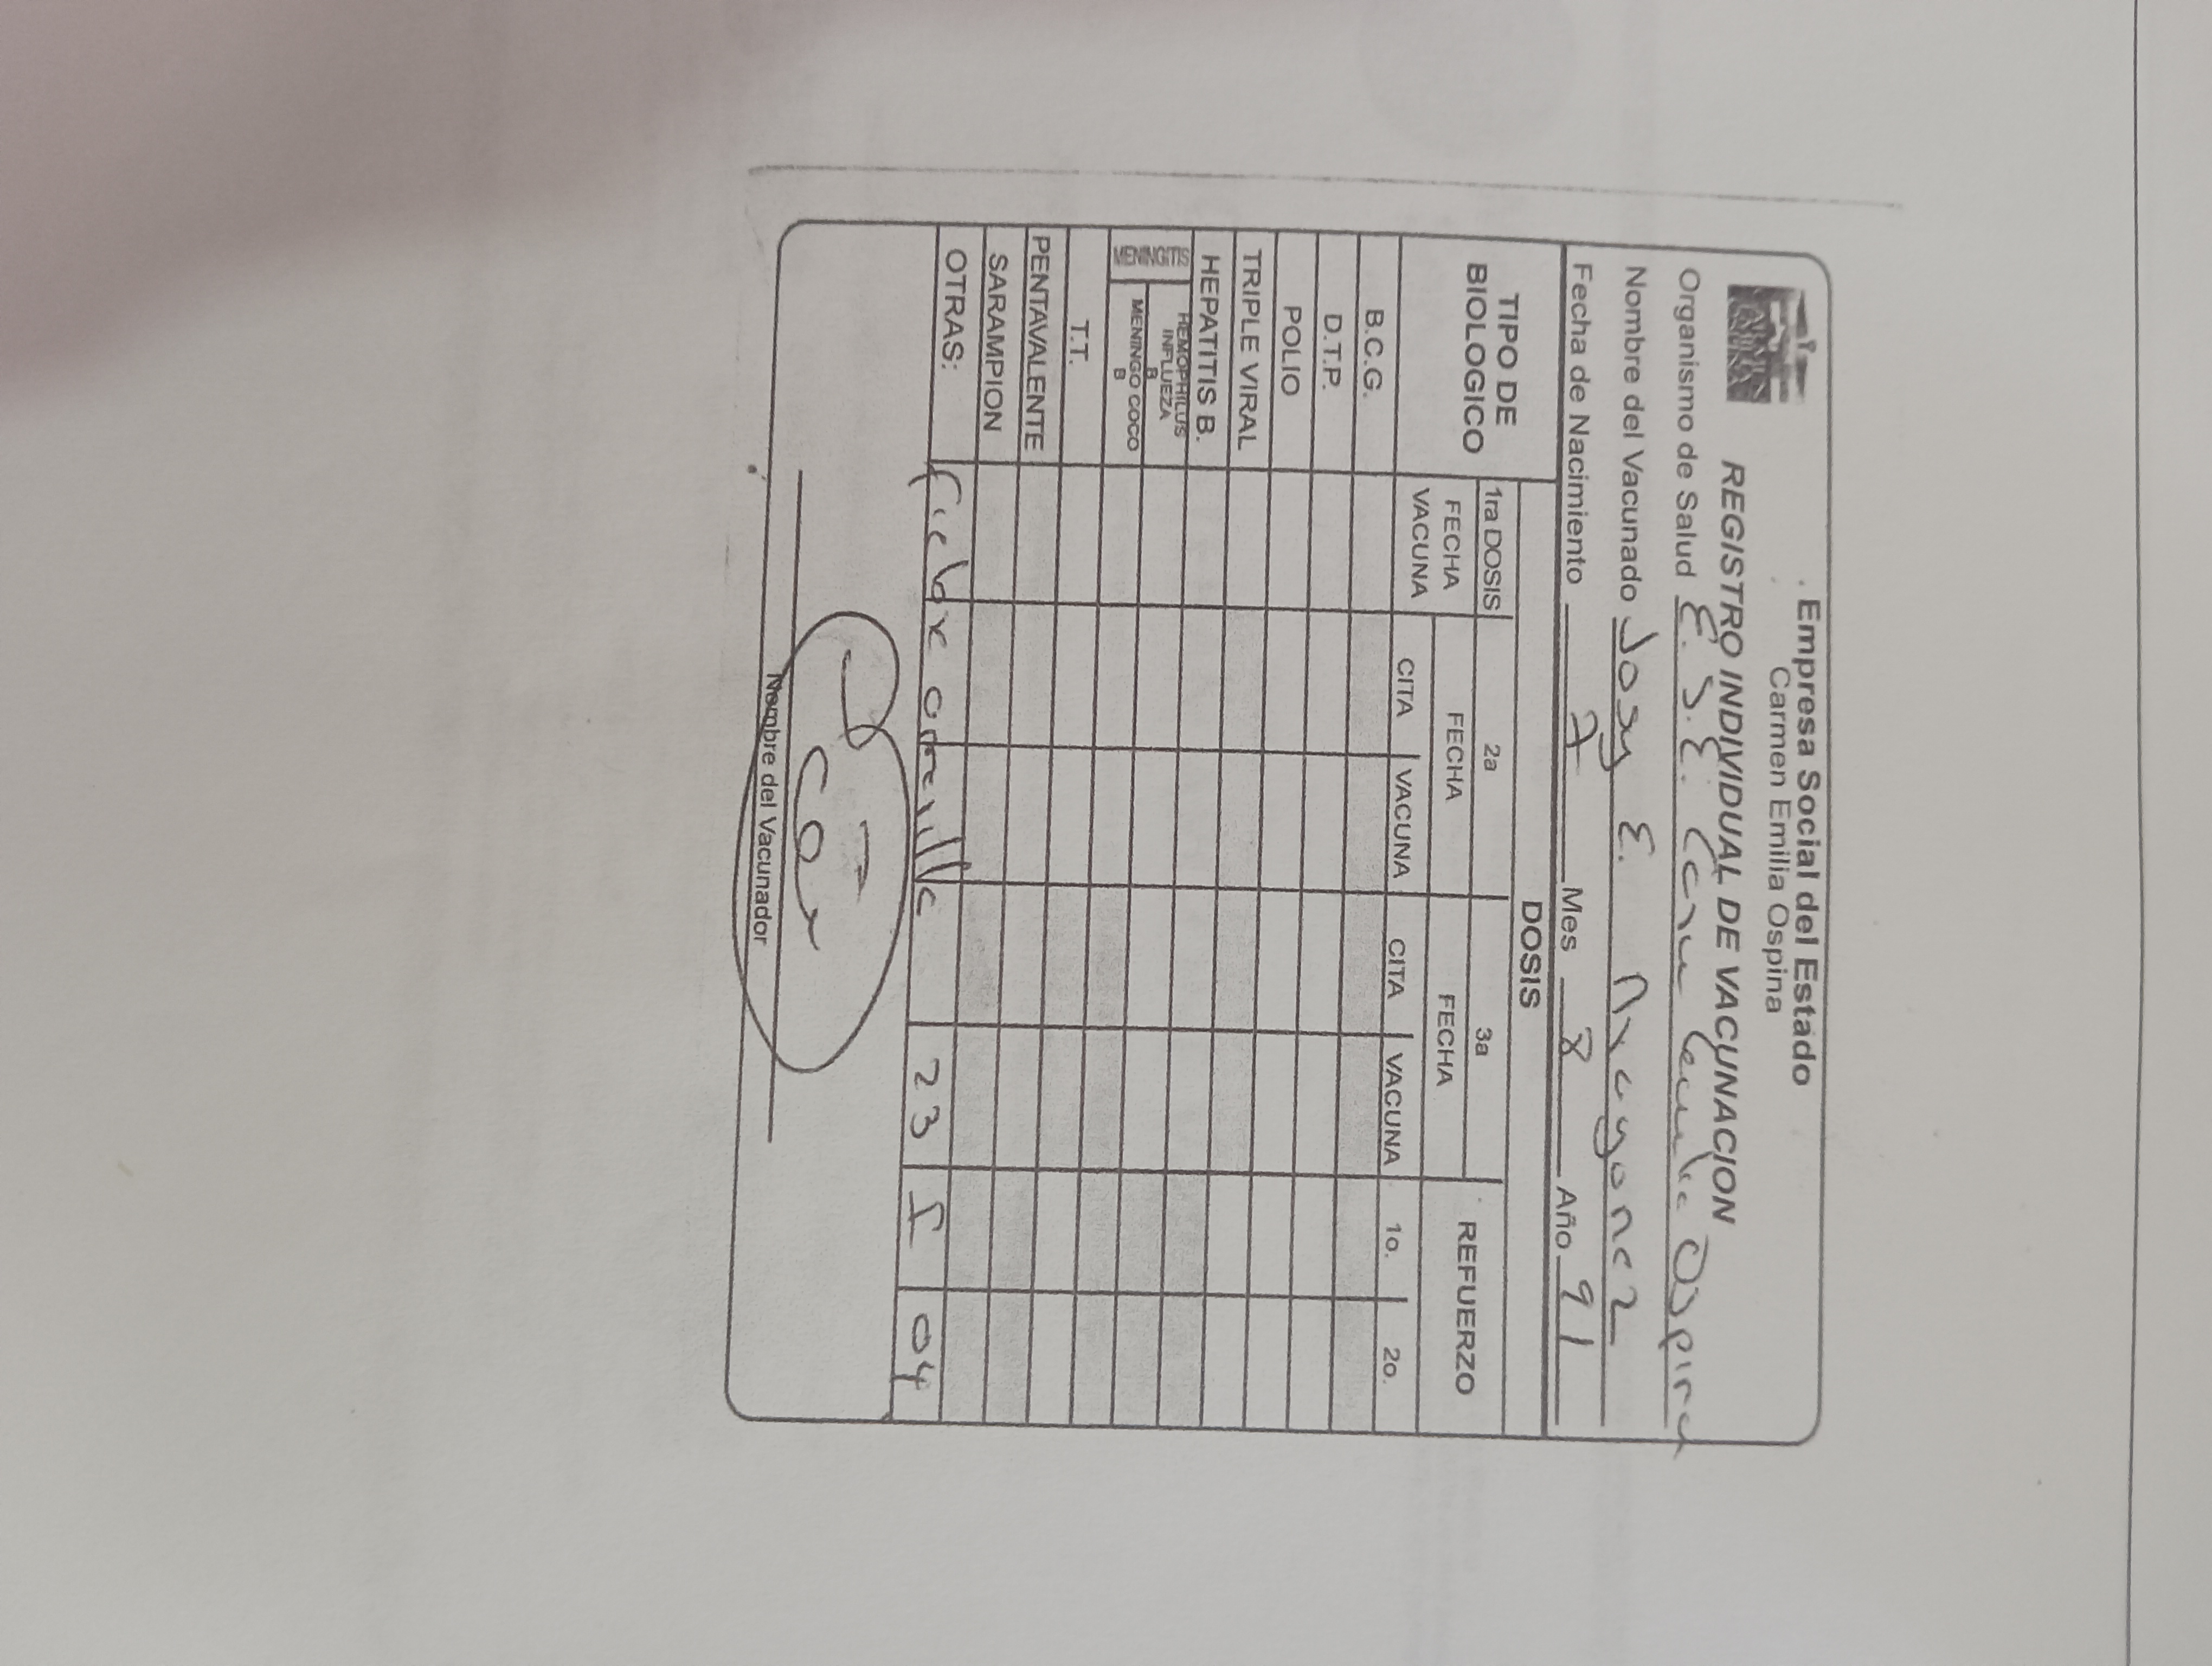 Empresa Social del Estado
Carmen Emilia Ospina
REGISTRO INDIVIDUAL DE VACUNACION
Organismo de Salud E. S. E. Carmen Emilia Ospina
Nombre del Vacunado Josy E.
Fecha de Nacimiento 7 Mes 8 Año 91
TIPO DE BIOLOGICO
DOSIS
1ra DOSIS 2a 3a REFUERZO
FECHA VACUNA FECHA FECHA
CITA VACUNA CITA VACUNA 1o. 2o.
B.C.G.
D.T.P.
POLIO
TRIPLE VIRAL
HEPATITIS B.
MENINGITIS
HEMOPHILUS INFLUEZA B
MENINGO COCO B
T.T.
PENTAVALENTE
SARAMPION
OTRAS: Fiebre amarilla 23 5 04
Nombre del Vacunador